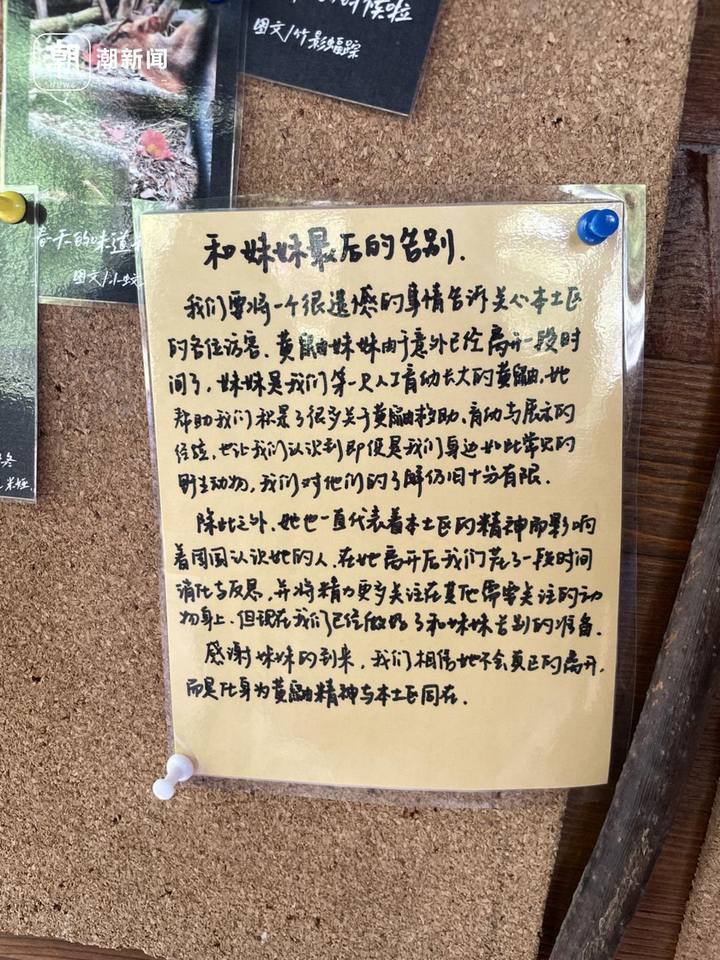 潮新闻
图文/竹影蝠踪
春天的味道
图文/小蛟
和妹妹最后的告别.
我们要将一个很遗憾的事情告诉关心本土区
的各位访客.黄鼬妹妹由于意外已经离开一段时
间了,妹妹是我们第一只人工育幼长大的黄鼬.她
帮助我们积累了很多关于黄鼬救助、育幼与展示的
经验,也让我们认识到即便是我们身边如此常见的
野生动物,我们对他们的了解仍旧十分有限.
除此之外,她也一直代表着本土区的精神而影响
着周围认识她的人.在她离开后我们花了一段时间
消化与反思,并将精力更多关注在其他需要关注的动
物身上.但现在我们已经做好了和妹妹告别的准备.
感谢妹妹的到来,我们相信她不会真正的离开,
而是化身为黄鼬精神与本土区同在.